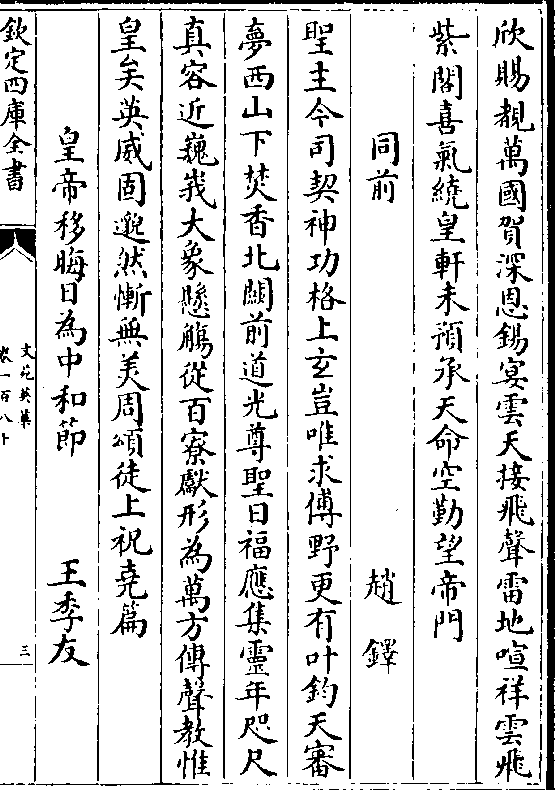 欣賜覩萬國賀深恩錫宴雲天接飛聲雷地喧祥雲飛
紫閣喜氣繞皇軒未預承天命空勤望帝門
同前 趙鐸
聖主今司契神功格上玄豈唯求傅野更有叶鈞天審
夢西山下焚香北闕前道光尊聖日福應集靈年咫尺
真容近巍峩大象懸觴從百寮獻形為萬方傳聲教惟
皇矣英威固邈然慚無美周頌徒上祝堯篇
皇帝移晦日為中和節 王季友
欽定四庫全書
文苑英華
卷一百八十
三